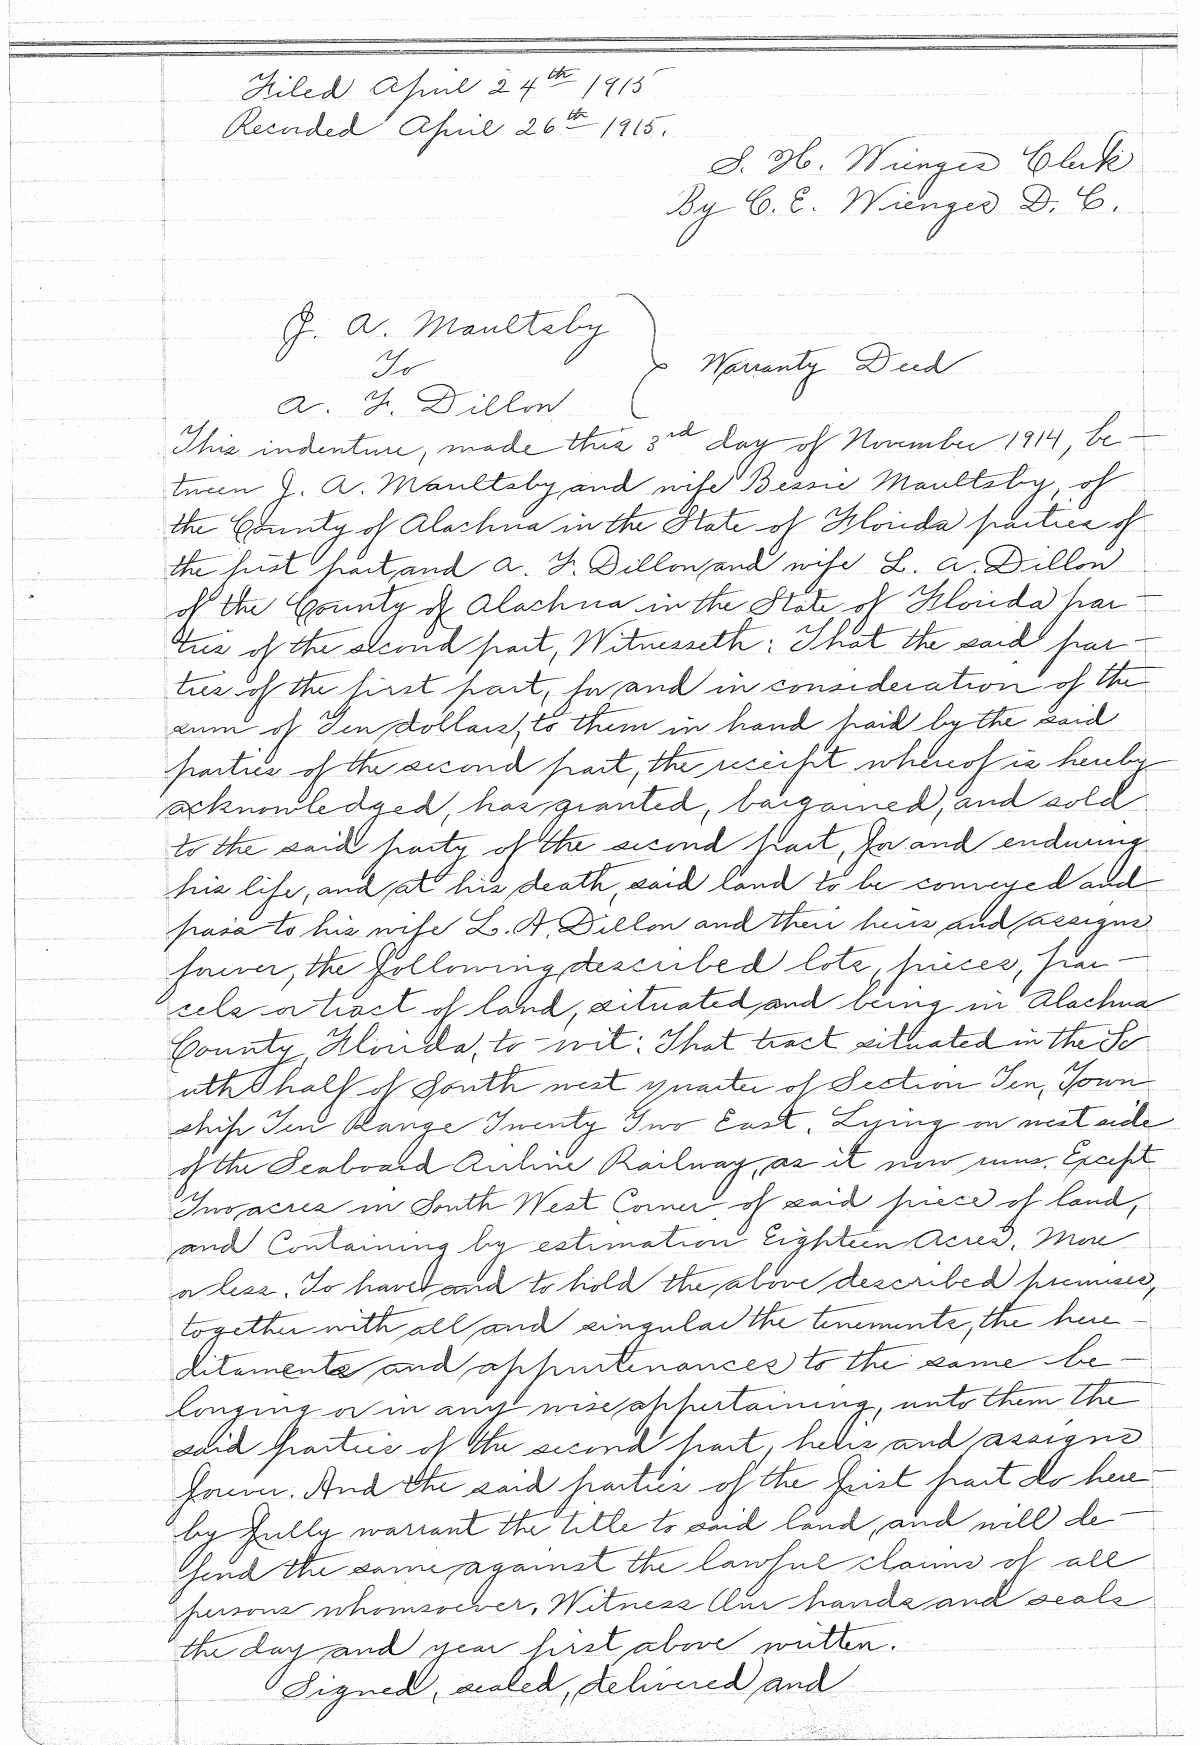 Filed April 24th 1915
Recorded April 26th 1915.
S. H. Wienges Clerk
By C. E. Wienges D. C.
J. A. Maultsby
To
Warranty Deed
A. F. Dillon
This indenture, made this 3rd day of November 1914, be-
tween J. A. Maultsby and wife Bessie Maultsby, of
the County of Alachua in the State of Florida parties of
the first part and A. F. Dillon and wife L. A. Dillon
of the County of Alachua in the State of Florida par-
ties of the second part, Witnesseth: That the said par-
ties of the first part, for and in consideration of the
sum of Ten dollars, to them in hand paid by the said
parties of the second part, the receipt whereof is hereby
acknowledged, has granted, bargained, and sold
to the said party of the second part, for and enduring
his life, and at his death, said land to be conveyed and
pass to his wife L. A. Dillon and their heirs and assigns
forever, the following described lots, pieces, par-
cels or tract of land, situated and being in Alachua
County, Florida, to-wit: That tract situated in the So
uth half of South west quarter of Section Ten, Town
ship Ten Range Twenty Two East. Lying on west side
of the Seaboard Airline Railway, as it now runs. Except
Two acres in South West Corner of said piece of land,
and Containing by estimation Eighteen Acres. More
or less. To have and to hold the above described premises,
together with all and singular the tenements, the here-
ditaments and appurtenances to the same be-
longing or in any wise appertaining, unto them the
said parties of the second part, heirs and assigns
forever. And the said parties of the first part do here-
by fully warrant the title to said land, and will de-
fend the same against the lawful claims of all
persons whomsoever. Witness Our hands and seals
the day and year first above written.
Signed, sealed, delivered and